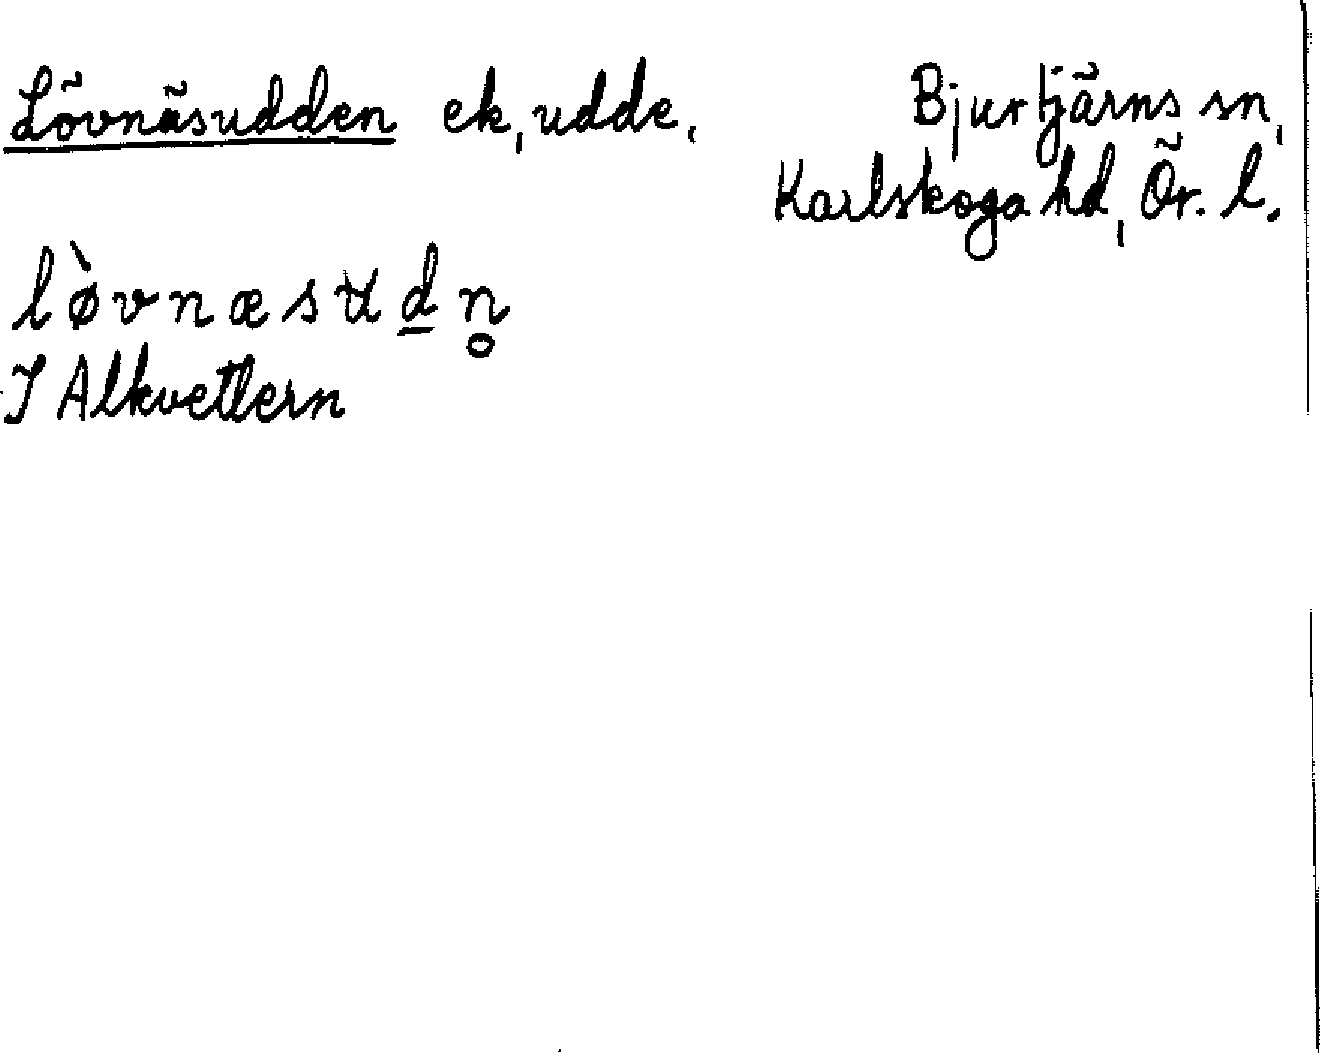 Lövnäsudden ek, udde, Bjurtjärns sn,
Karlskoga hd, Ör. l.
lø̀vnæsʉd̲n̥
I Alkvettern